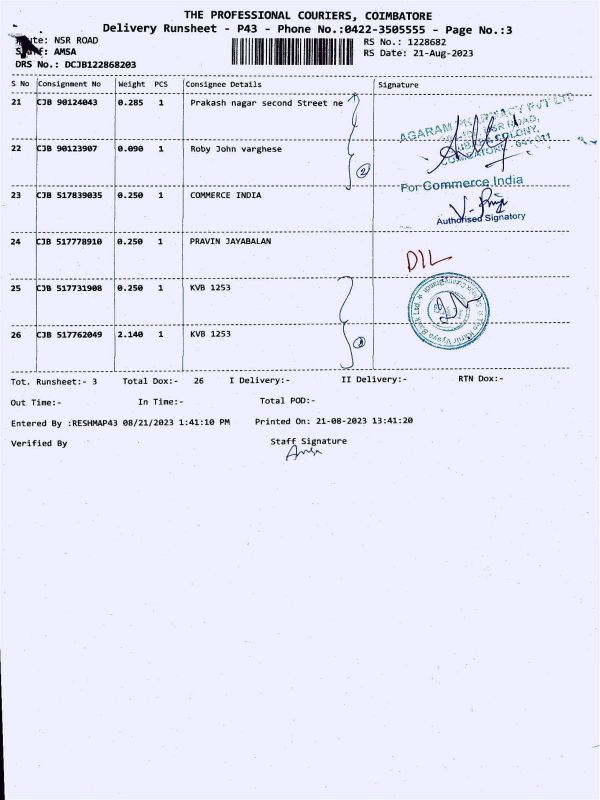 THE PROFESSIONAL COURIERS, COIMBATORE
Delivery Runsheet - P43 - Phone No.:0422-3505555 - Page No.:3
NSR ROAD
RS No.: 1228682
AMSA
RS Date: 21-Aug-2023
DRS No.: DCJB122868203
S No Consignment No Weight PCS Consignee Details Signature
21 CJB 90124043 0.285 1 Prakash nagar second Street ne
AGARAM PVT LTD
NSR ROAD,
COLONY,
22 CJB 90123907 0.090 1 Roby John varghese
2
For Commerce India
23 CJB 517839035 0.250 1 COMMERCE INDIA
V. Priya
Authorised Signatory
24 CJB 517778910 0.250 1 PRAVIN JAYABALAN
DIL
25 CJB 517731908 0.250 1 KVB 1253
The Karur Vysya Bank Ltd.
26 CJB 517762049 2.140 1 KVB 1253
Tot. Runsheet:- 3 Total Dox:- 26 I Delivery:- II Delivery:- RTN Dox:-
Out Time:- In Time:- Total POD:-
Entered By :RESHMAP43 08/21/2023 1:41:10 PM Printed On: 21-08-2023 13:41:20
Verified By Staff Signature
Amsa